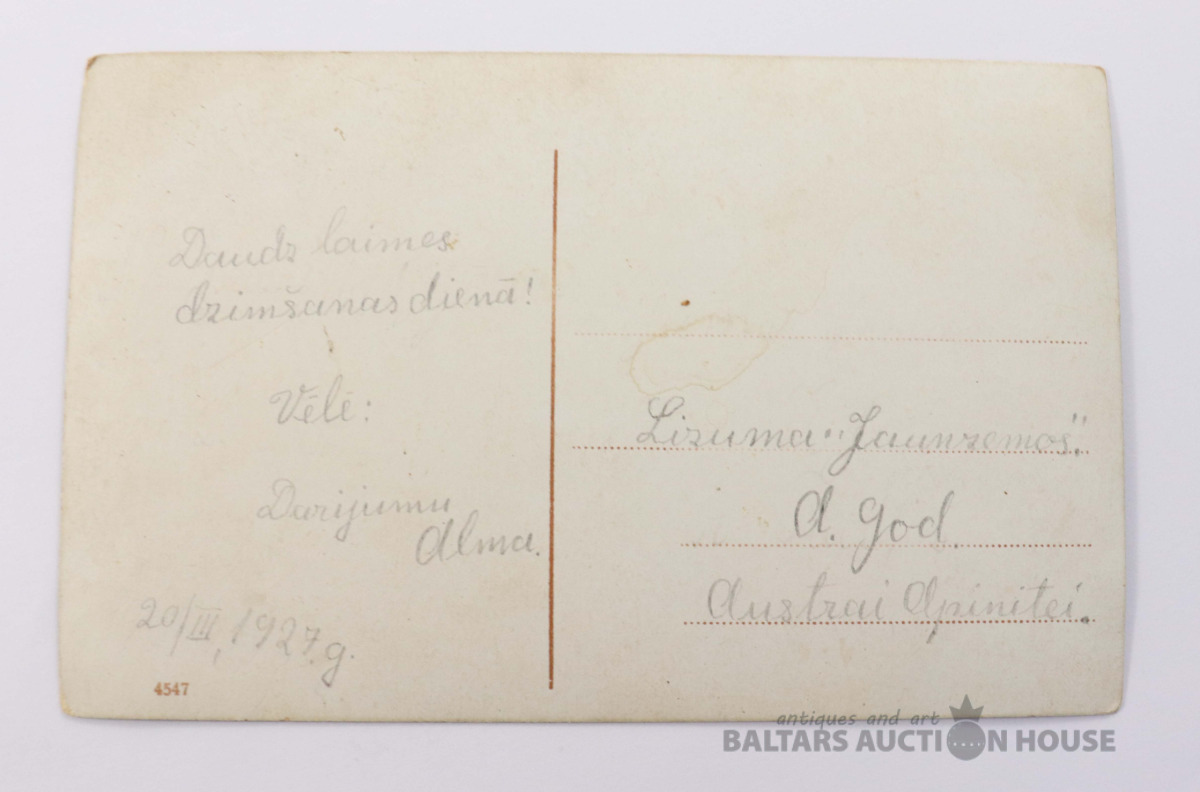 Daudz laimes
dzimšanas dienā!
Vēlē:
Darijumu
Alma.
20/III, 1927. g.
4547
Lizuma "Jaunzemos".
A. God.
Austrai Apinitei.
antiques and art
BALTARS AUCTION HOUSE